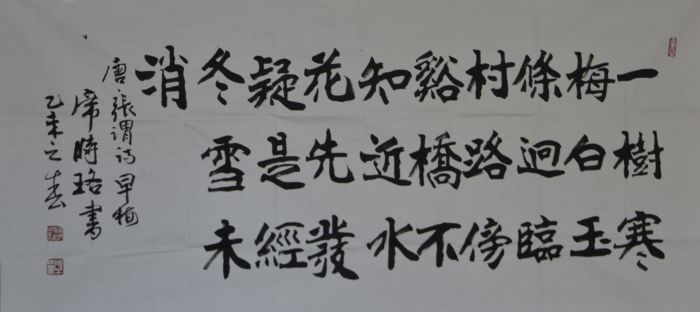 一樹寒
梅白玉
條迥臨
村路傍
谿橋不
知近水
花先發
疑是經
冬雪未
消
唐張謂詩早梅
席時珞書
乙未之春